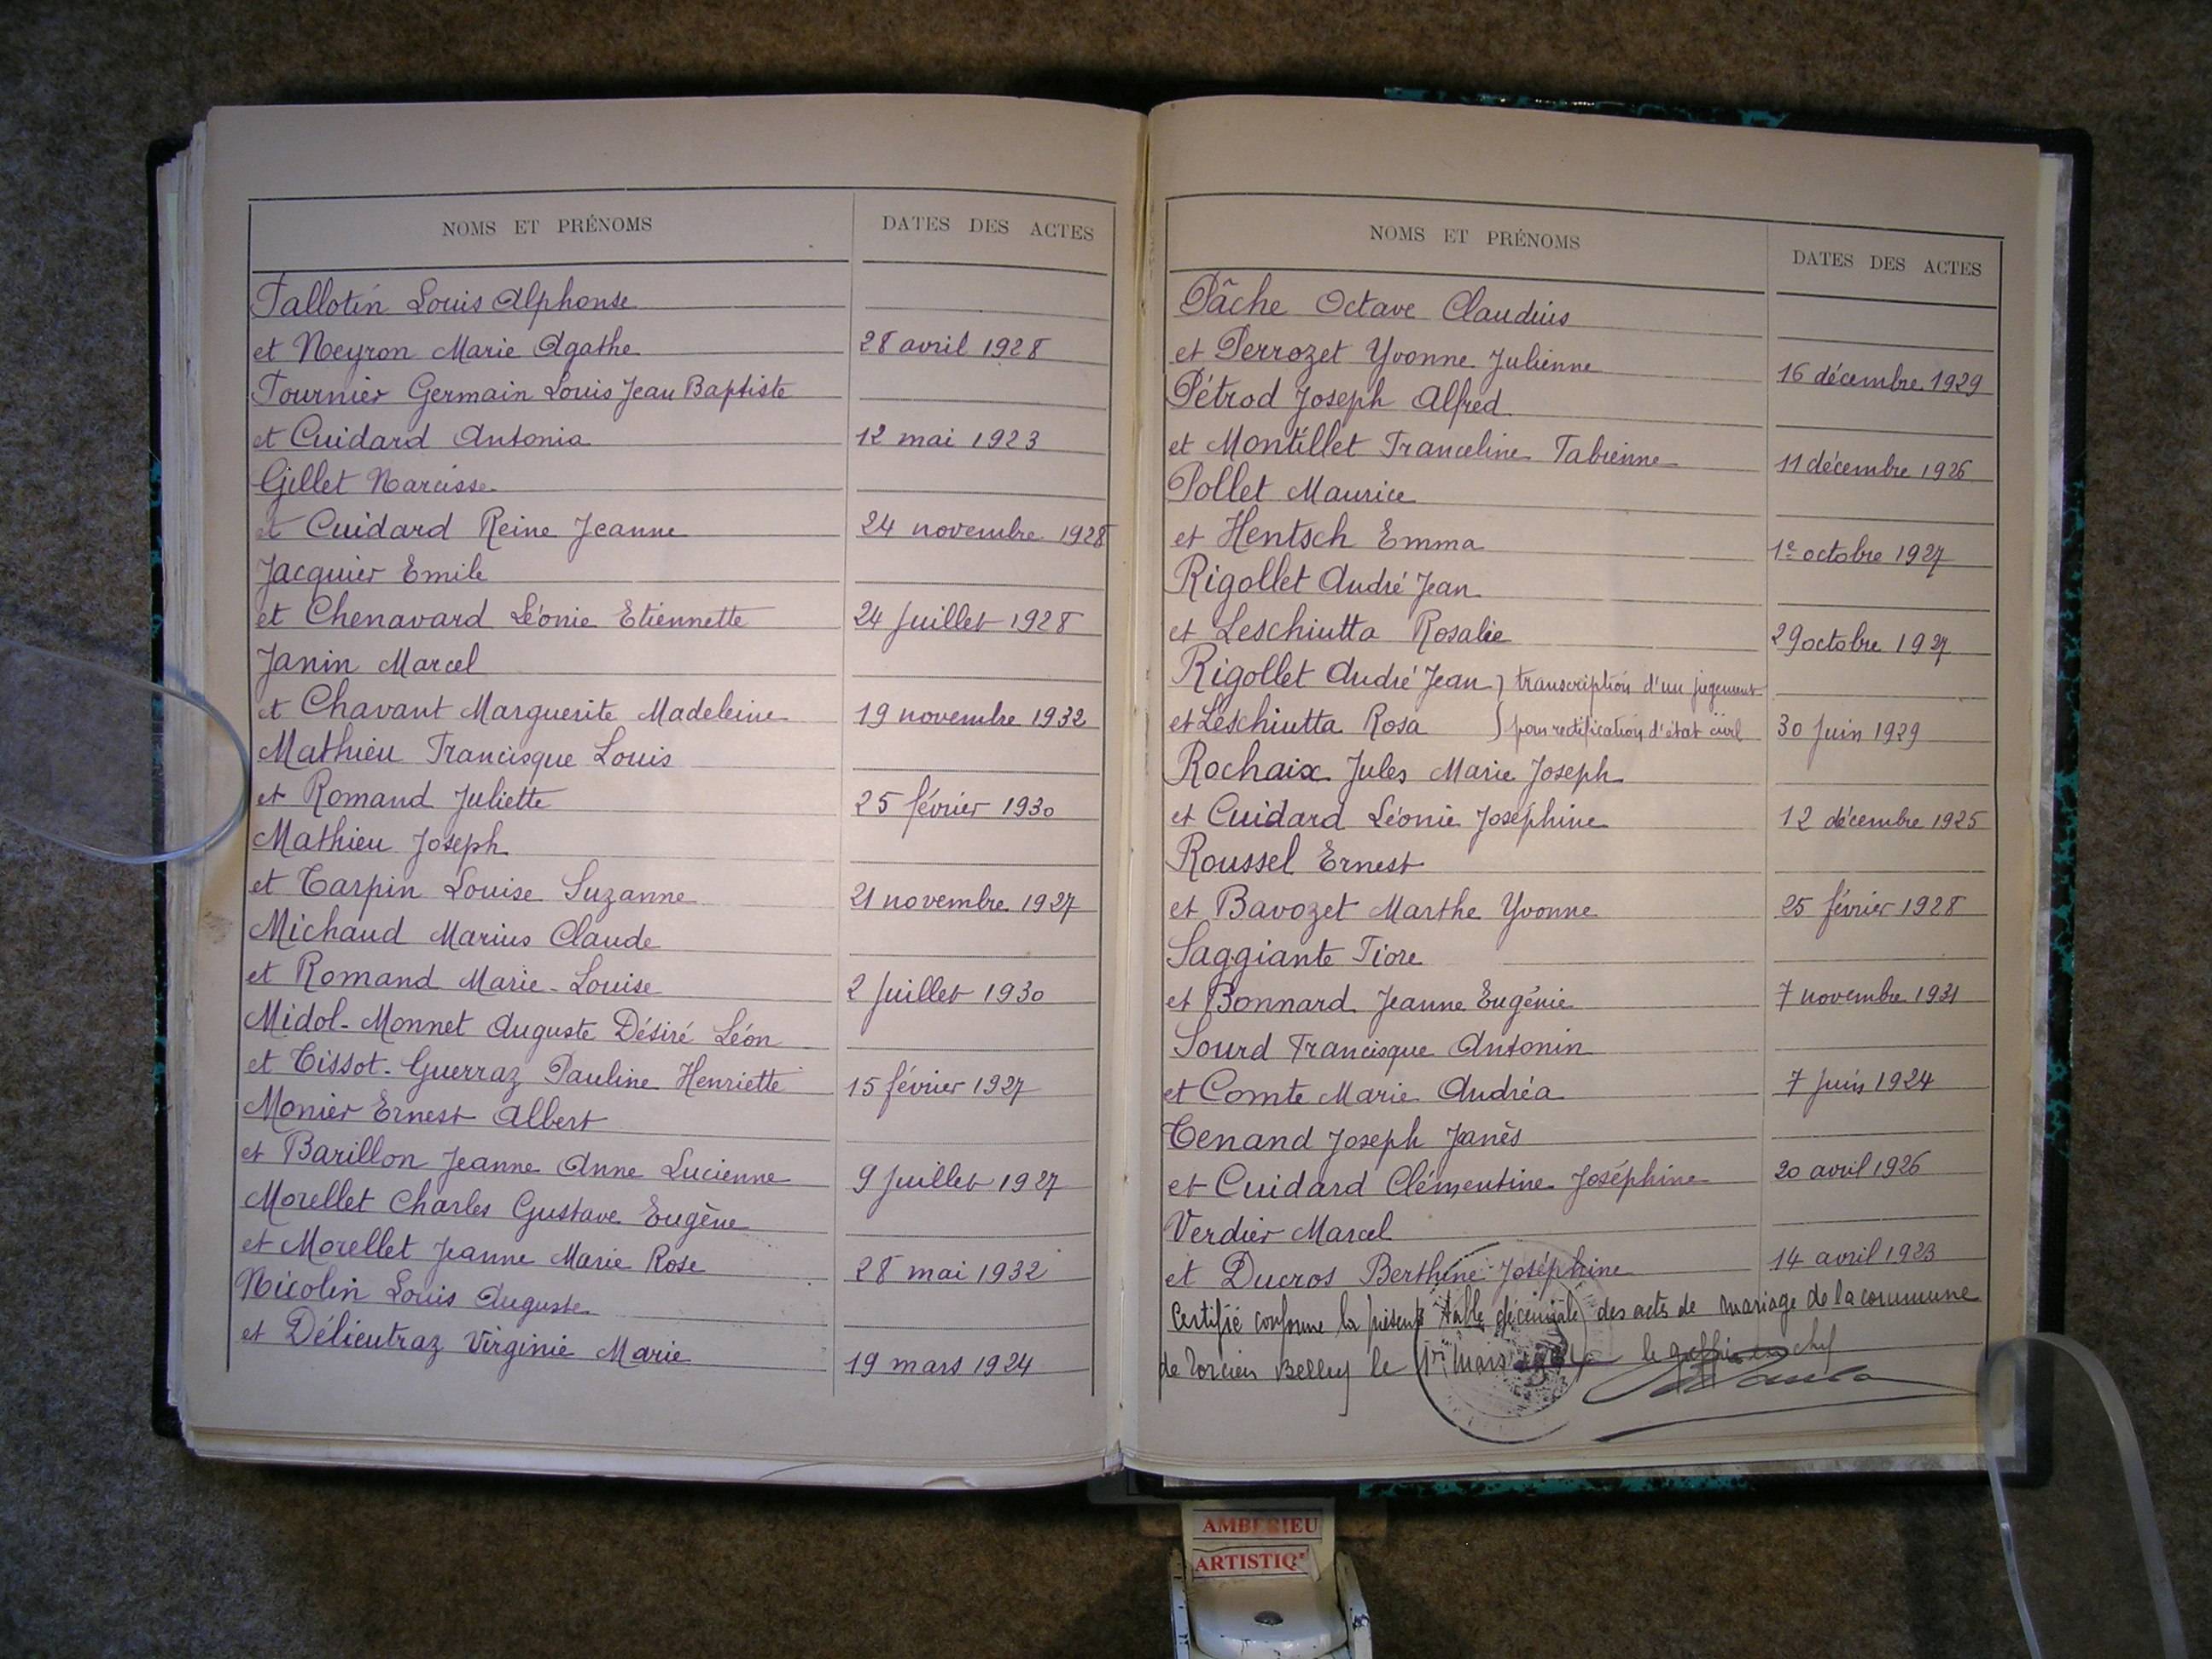 NOMS ET PRÉNOMS
DATES DES ACTES
Fallotin Louis Alphonse
et Neyron Marie Agathe 28 avril 1928
Fournier Germain Louis Jean Baptiste
et Cuidard Antonia 12 mai 1923
Gillet Narcisse
et Cuidard Reine Jeanne 24 novembre 1928
Jacquier Emile
et Chenavard Léonie Etiennette 24 Juillet 1928
Janin Marcel
et Chavant Marguerite Madeleine 19 novembre 1932
Mathieu Francisque Louis
et Romand Juliette 25 février 1930
Mathieu Joseph
et Tarpin Louise Suzanne 21 novembre 1927
Michaud Marius Claude
et Romand Marie-Louise 2 Juillet 1930
Midol-Monnet Auguste Désiré Léon
et Tissot-Guerraz Pauline Henriette 15 février 1927
Monier Ernest Albert
et Barillon Jeanne Anne Lucienne 9 Juillet 1927
Morellet Charles Gustave Eugène
et Morellet Jeanne Marie Rose 28 mai 1932
Nicolin Louis Auguste
et Délieutraz Virginie Marie 19 mars 1924
NOMS ET PRÉNOMS
DATES DES ACTES
Pâche Octave Claudius
et Perrozet Yvonne Julienne 16 décembre 1929
Pétrod Joseph Alfred
et Montillet Franceline Fabienne 11 décembre 1926
Pollet Maurice
et Hentsch Emma 1e octobre 1927
Rigollet André Jean
et Leschiutta Rosalie 29 octobre 1927
Rigollet André Jean } transcription d'un jugement
et Leschiutta Rosa } pour rectification d'état civil 30 Juin 1929
Rochaix Jules Marie Joseph
et Cuidard Léonie Joséphine 12 décembre 1925
Roussel Ernest
et Bavozet Marthe Yvonne 25 février 1928
Saggiante Fiore
et Bonnard Jeanne Eugénie 7 novembre 1931
Sourd Francisque Antonin
et Comte Marie Andréa 7 Juin 1924
Tenand Joseph Janès
et Cuidard Clémentine Joséphine 20 avril 1926
Verdier Marcel
et Ducros Berthine Joséphine 14 avril 1923
Certifié conforme la présente table décennale des actes de mariage de la commune
de Torcieu Belley le 1er Mars le greffier en chef
AMBERIEU
ARTISTIQ'